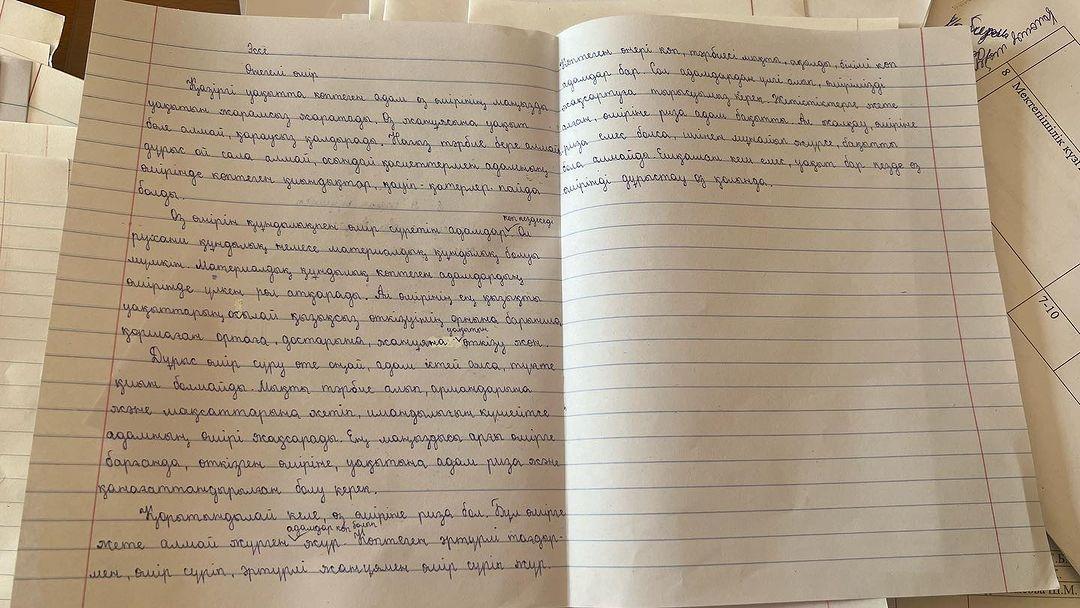 Эссе
Өнегелі өмір
Қазіргі уақытта көптеген адам өз өмірінің маңызды
уақытын жарамсыз жаратады. Өз жанұясына уақыт
бөле алмай, қараусыз қалдырады. Нағыз тәрбие бере алмай,
дұрыс ой сала алмай, осындай қасиеттермен адамның
өмірінде көптеген қиындықтар, қауіп-қатерлер пайда
болды.
көп кездеседі
Өз өмірін құндылықпен өмір сүретін адамдар Ол
рухани құндылық немесе материалдық құндылық болуы
мүмкін. Материалдық құндылық көптеген адамдардың
өмірінде үлкен рөл атқарады. Ал өмірінің ең қызықты
уақыттарың осылай қызықсыз өткізуінің орнына барынша
қоршаған ортаға, достарына, жанұяңа уақытын өткізу жөн.
Дұрыс өмір сүру өте оңай, адам істей алса, түкте
қиын болмайды. Мықты тәрбие алып, армандарына
және мақсаттарына жетіп, имандылығын күшейтсе
адамның өмірі жақсарады. Ең маңыздысы арғы өмірге
барғанда, өткізген өміріне, уақытына адам риза және
қанағаттандырылған болу керек.
Қорытындылай келе, өз өміріне риза бол. Бұл өмірге
адамдар көп болып
жете алмай жүрген жүр. Көптеген әртүрлі таңдар-
мен, өмір сүріп, әртүрлі жанұямен өмір сүріп жүр.
Көптеген өнері көп, тәрбиесі мықты, ақылды, білімі көп
адамдар бар. Сол адамдардан үлгі алып, өмірімізді
жақсартуға тырысуымыз керек. Жетістіктерге жете
алған, өміріне риза адам бақытты. Ал жалқау, өміріне
риза емес болса, іштен мұңайып жүрсе, бақытты
бола алмайды Ешқашан кеш емес, уақыт бар кезде өз
өміріңді дұрыстау өз қолыңда.
8
Мектепішілік
7-10
Ш.М.